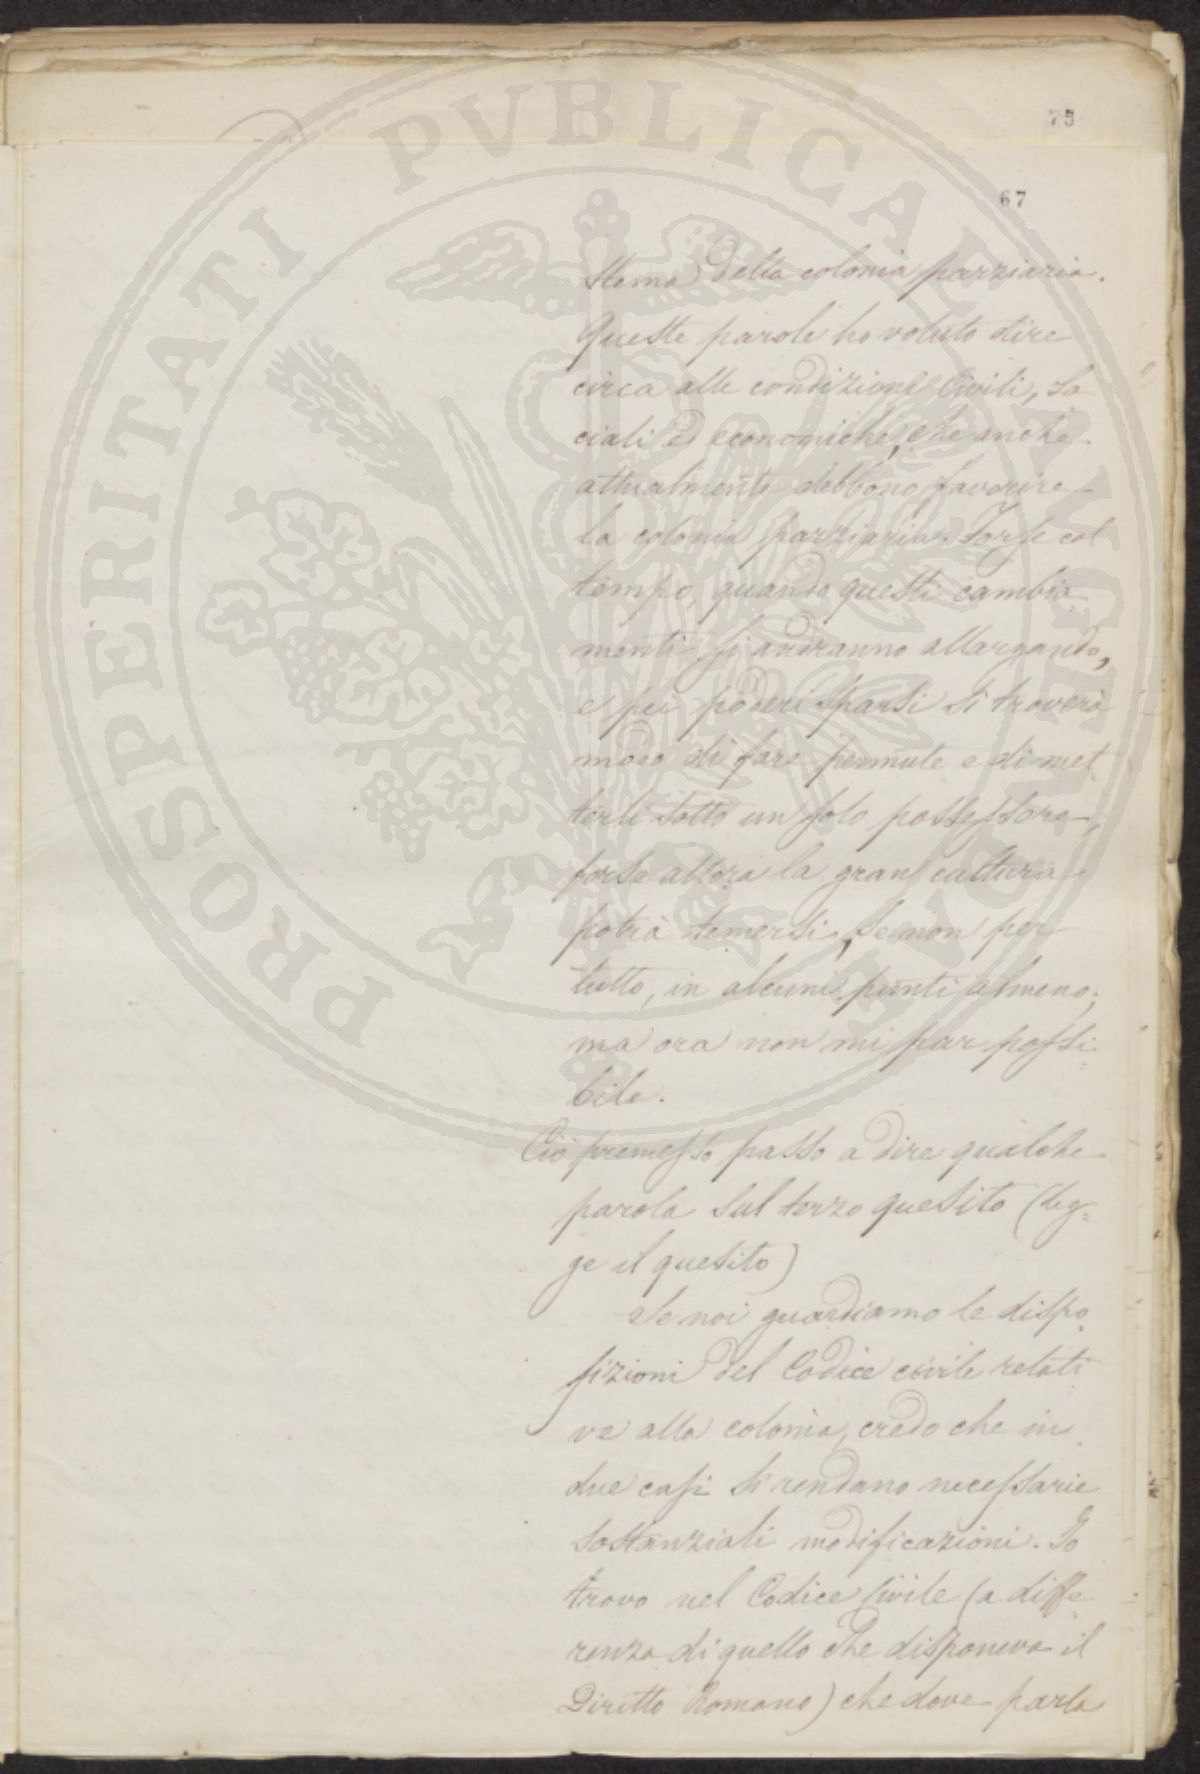 75
67
stema della colonia parziaria.
Queste parole ho voluto dire
circa alle condizioni Civili, So
ciali ed economiche, che anche
attualmente debbono favorire
la colonia parziaria. Forse col
tempo, quando questi cambia
menti si andranno allargando,
e pei poderi sparsi si troverà
modo di fare permute e di met
terli sotto un solo possessore,
forse allora la gran cultura
potrà temersi, se non per
tutto, in alcuni punti almeno;
ma ora non mi par possi=
bile.
Ciò premesso passo a dire qualche
parola sul terzo quesito (leg=
ge il quesito)
Se noi guardiamo le dispo
sizioni del Codice civile relati
ve alla colonia, credo che in
due casi si rendano necessarie
sostanziali modificazioni. Io
trovo nel Codice Civile (a diffe
renza di quello che disponeva il
Diritto Romano) che dove parla
PROSPERITATI PVBLICAE AVGENDAE